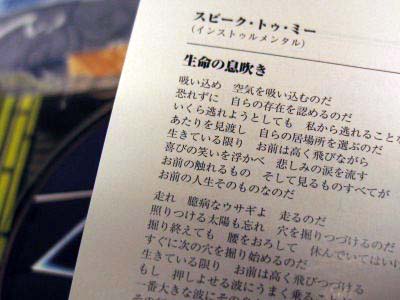 スピーク・トゥ・ミー
(インストゥルメンタル)
生命の息吹き
吸い込め　空気を吸い込むのだ
恐れずに　自らの存在を認めるのだ
いくら逃れようとしても　私から逃れることな
あたりを見渡し　自らの居場所を選ぶのだ
生きている限り　お前は高く飛びながら
喜びの笑いを浮かべ　悲しみの涙を流す
お前の触れるもの　そして見るものすべてが
お前の人生そのものなのだ
走れ　臆病なウサギよ　走るのだ
照りつける太陽も忘れ　穴を掘りつづけるのだ
掘り終えても　腰をおろして　休んでいてはいけ
すぐに次の穴を掘り始めるのだ
生きている限り　お前は高く飛びつづける
もし　押しよせる波にうまく乗るこ
一番大きな波にその身